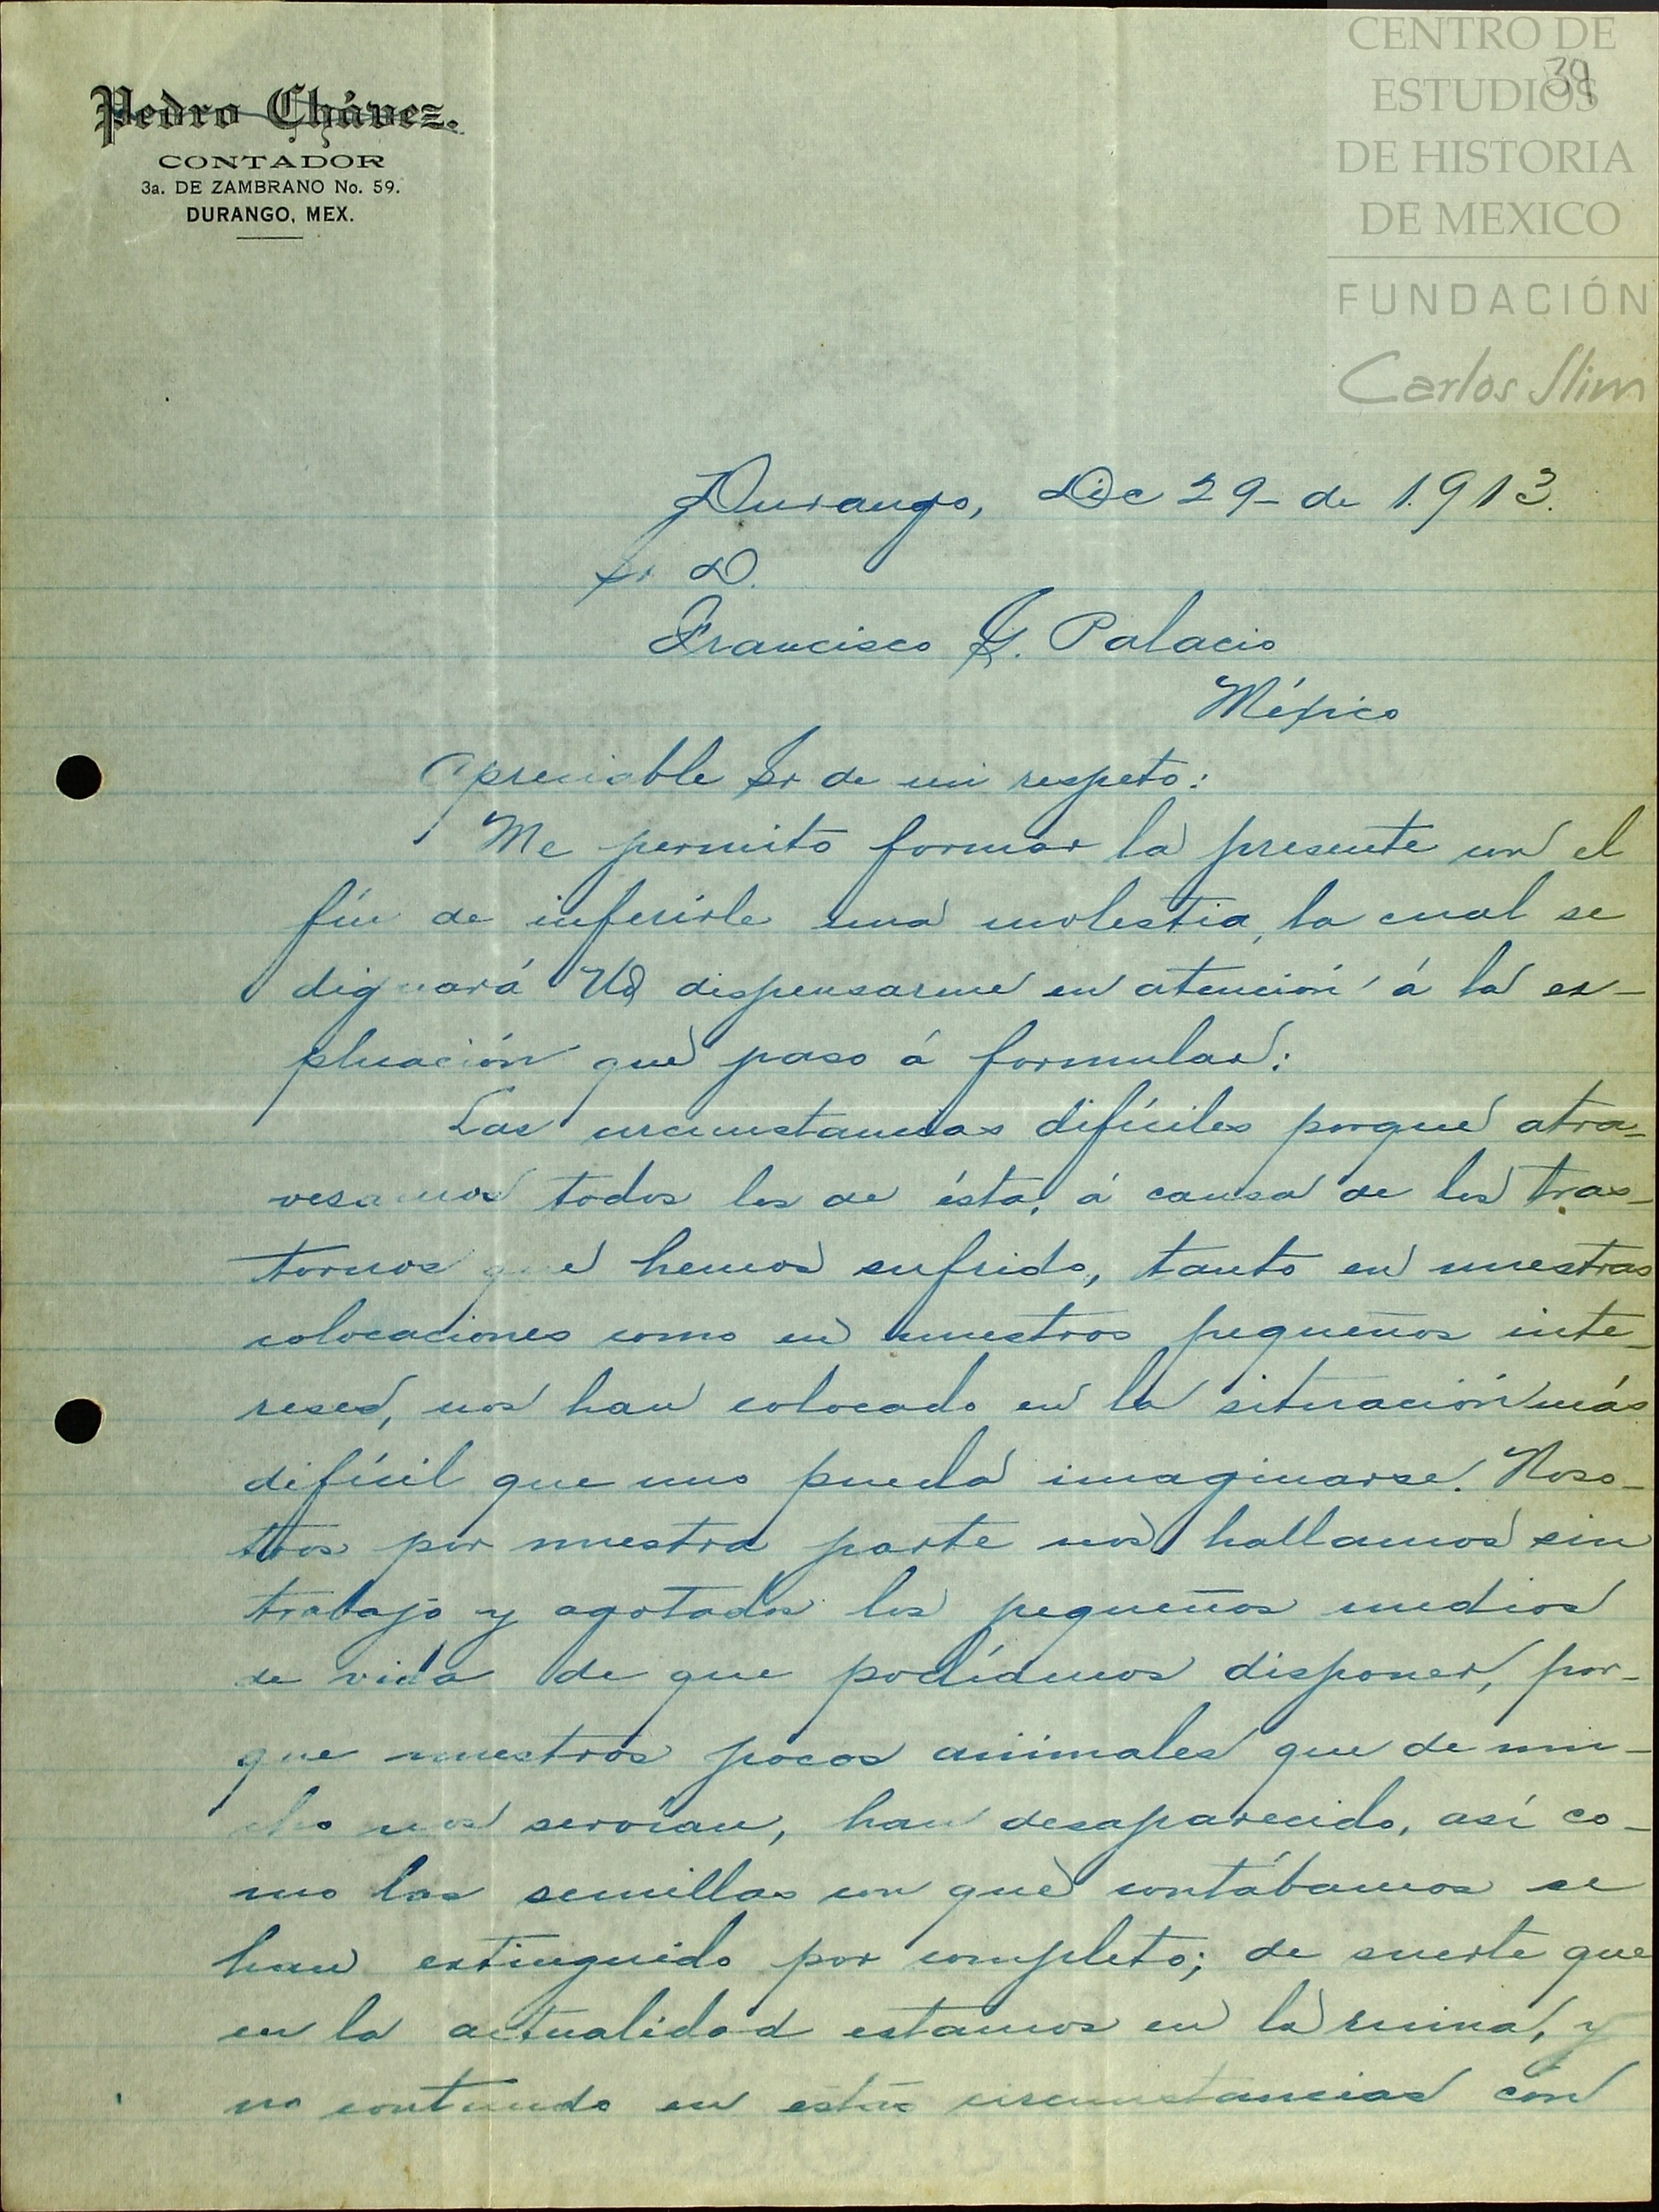 CENTRO DE
ESTUDIOS
DE HISTORIA
DE MEXICO
FUNDACIÓN
Carlos Slim
39
Pedro Chávez.
CONTADOR
3a. DE ZAMBRANO No. 59.
DURANGO, MEX.
Durango, Dic 29- de 1913.
Sr D.
Francisco G. Palacio
México
Apreciable Sr de mi respeto:
Me permito formar la presente con el
fin de inferirle una molestia, la cual se
dignará Ud dispensarme en atención á la ex-
plicación que paso á formular:
Las circunstancias difíciles porque atra-
vesamos todos los de ésta, á causa de los tras-
tornos que hemos sufrido, tanto en nuestras
colocaciones como en nuestros pequeños inte-
reses, nos han colocado en la situación más
difícil que uno pueda imaginarse. Noso-
tros por nuestra parte nos hallamos sin
trabajo y agotados los pequeños medios
de vida de que podíamos disponer, por-
que nuestros pocos animales que de mu-
cho nos servían, han desaparecido, así co-
mo las semillas con que contábamos se
han extinguido por completo; de suerte que
en la actualidad estamos en la ruina, y
no contando en estas circunstancias con